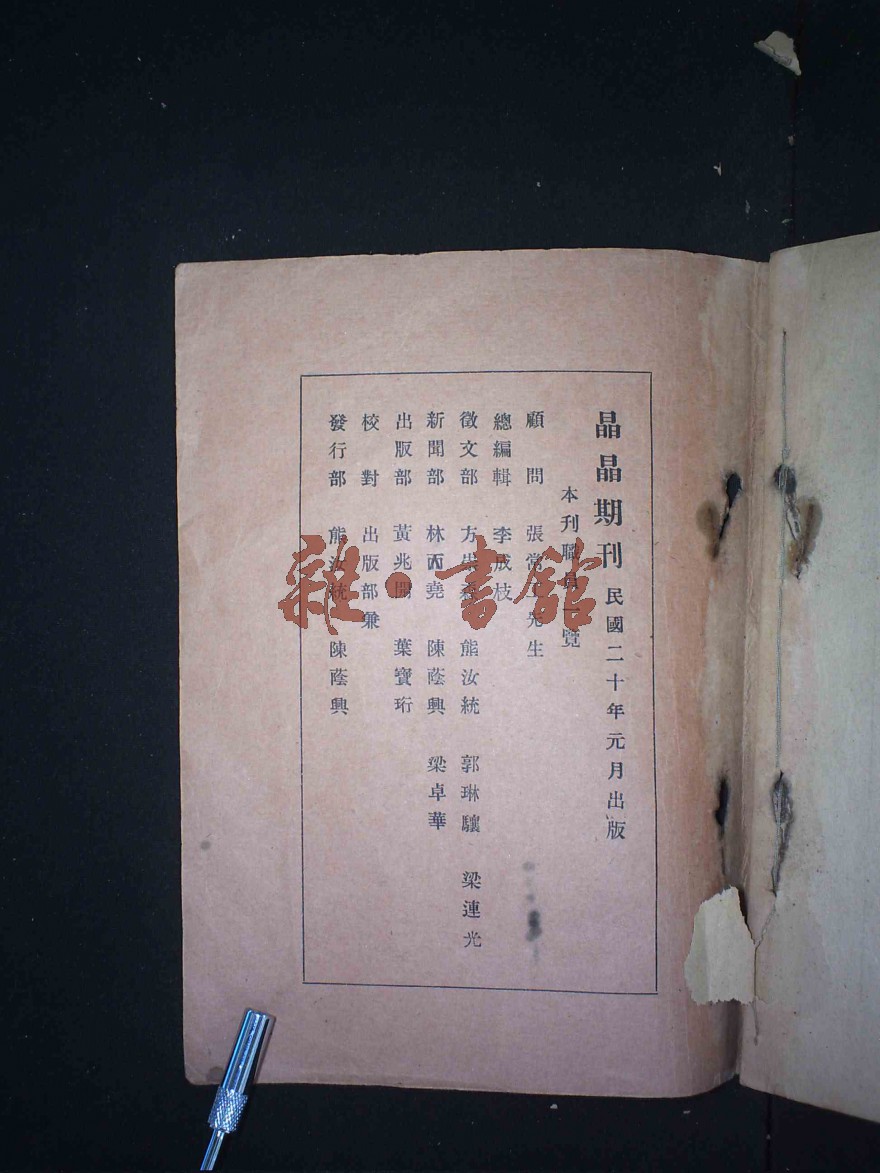 晶晶期刊 民國二十年元月出版
本刊職員一覽
顧問 張常 先生
總編輯 李成枝
徵文部 方 熊汝統 郭琳驤 梁連光
新聞部 林 堯 陳蔭興 梁卓華
出版部 黃兆開 葉寶珩
校對 出版部兼
發行部 熊汝統 陳蔭興
雜·書館